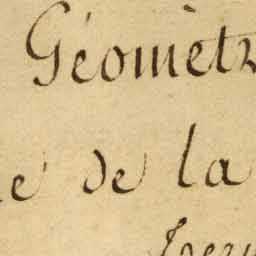 Géomètr
e de la